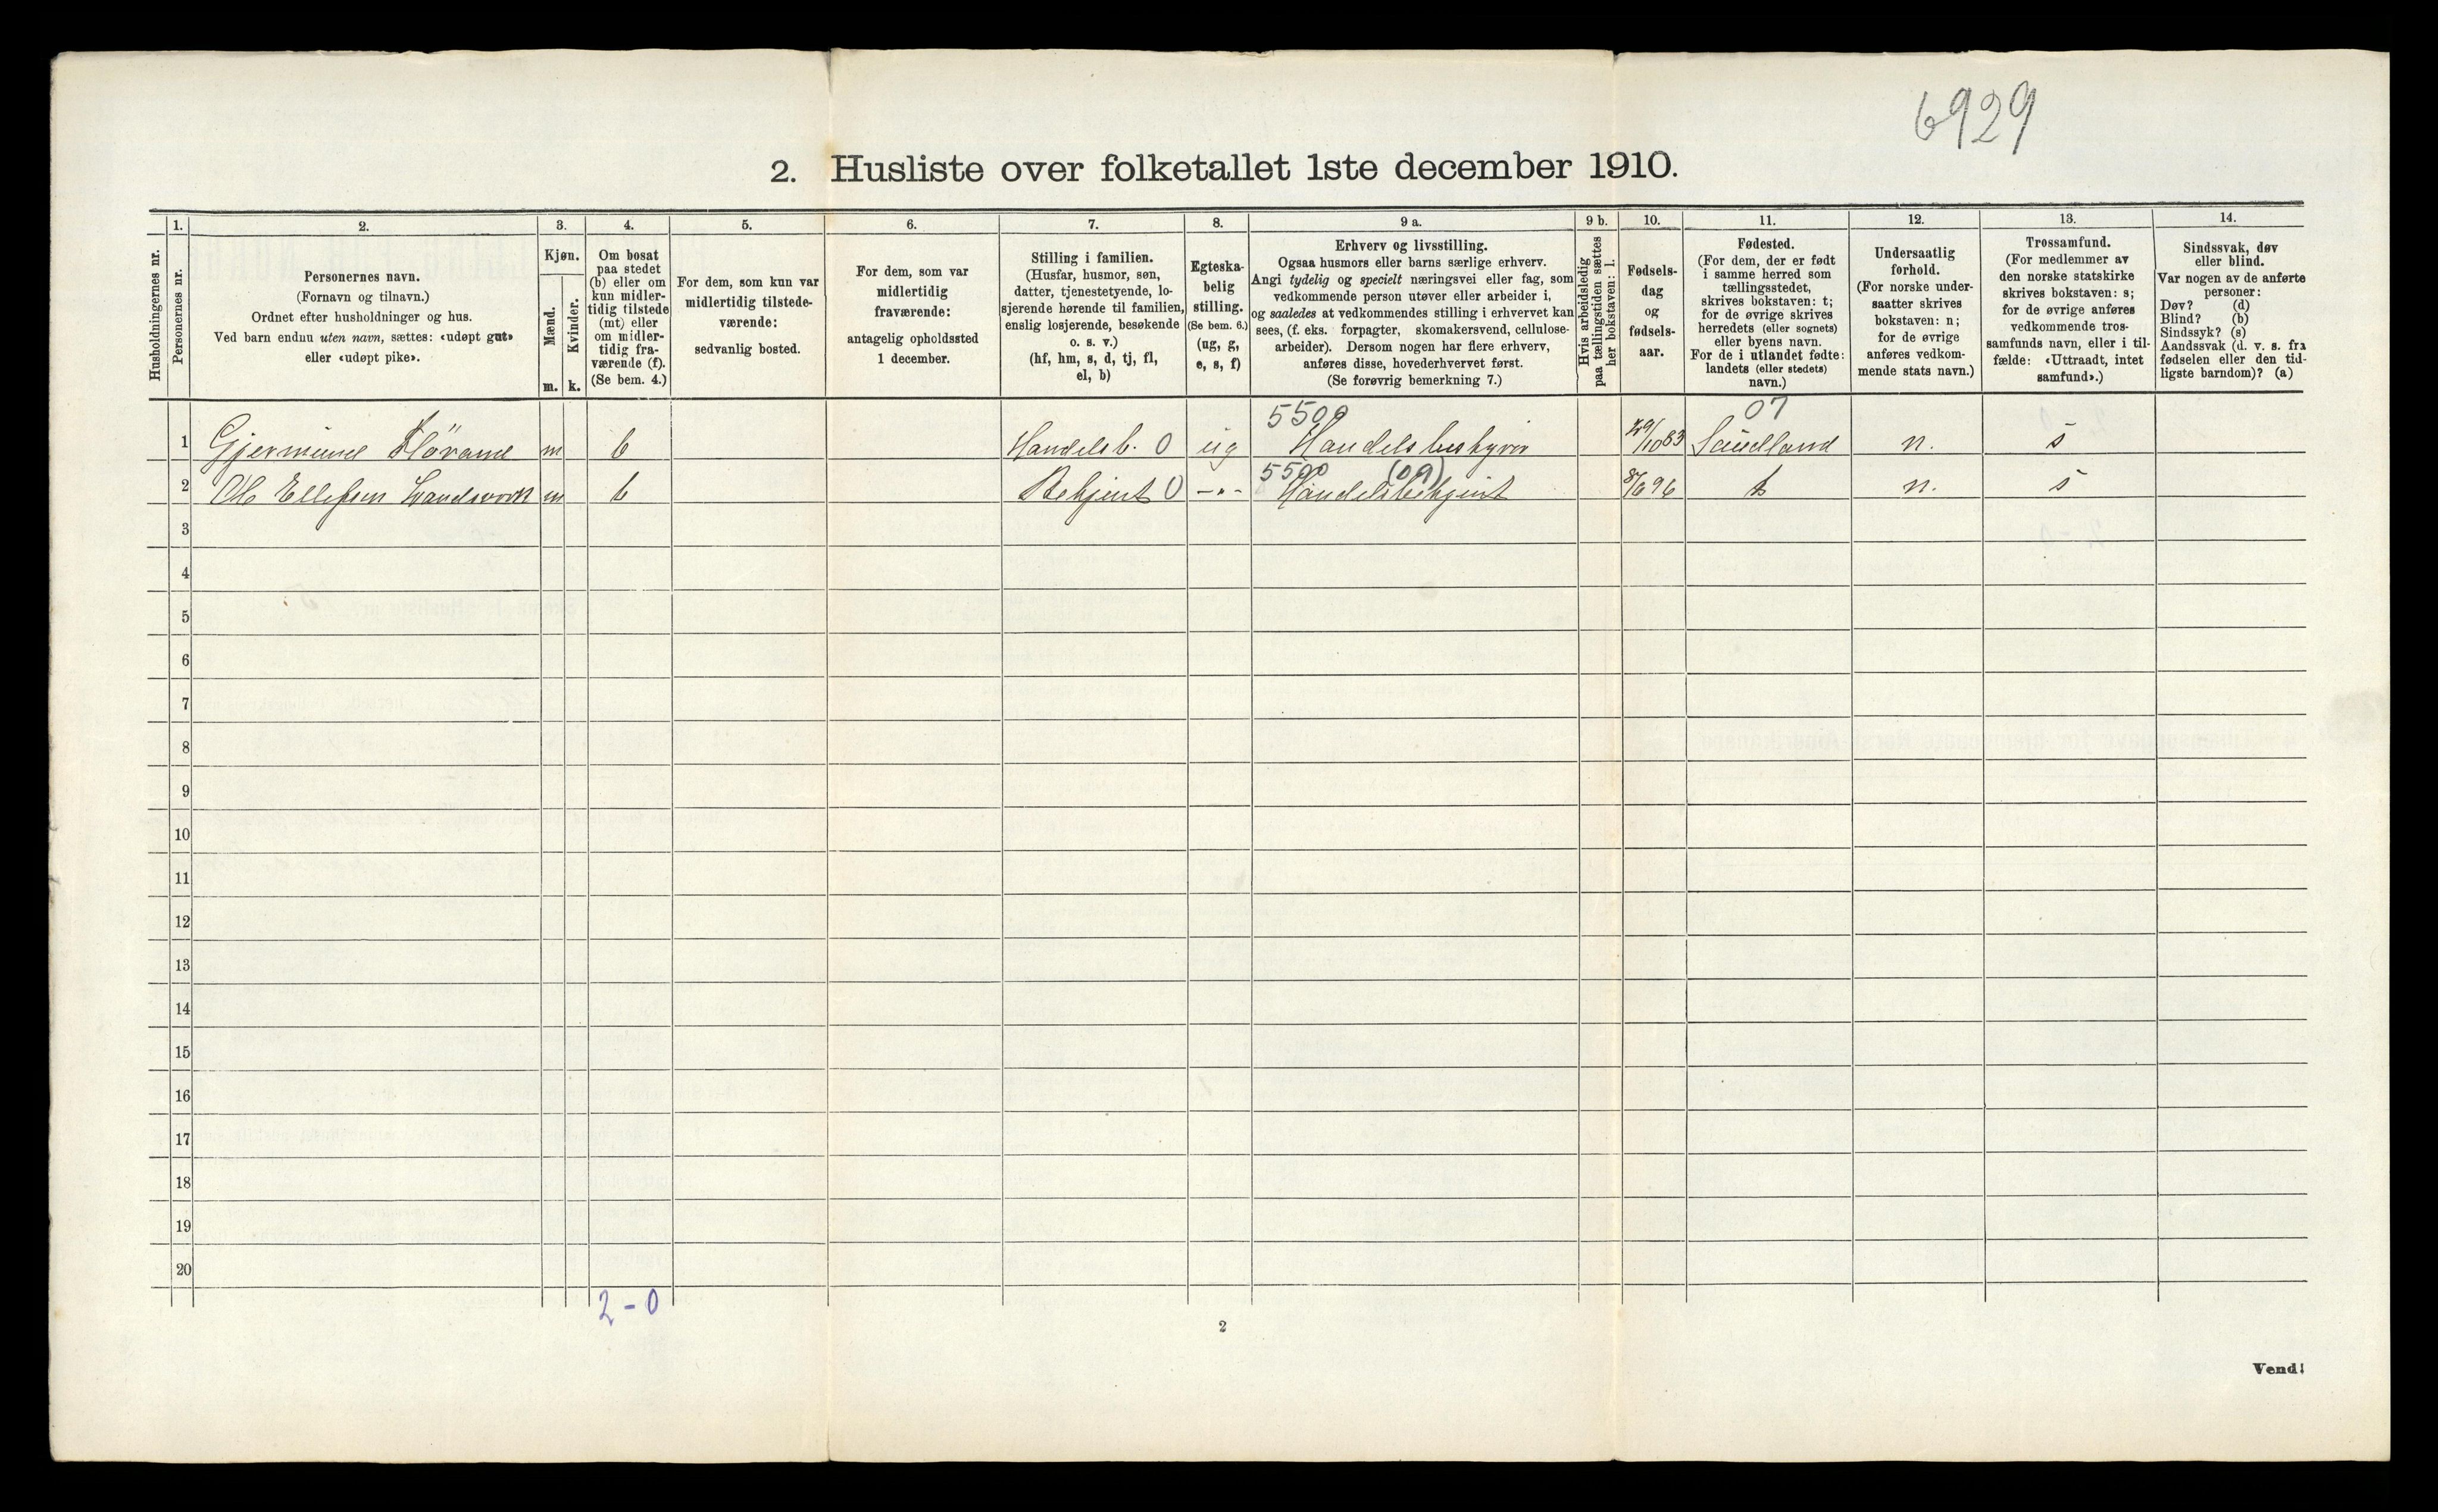 6929
2. Husliste over folketallet 1ste december 1910.
1. 2. 3. 4. 5. 6. 7. 8. 9 a. 9 b. 10. 11. 12. 13. 14.
Husholdningernes nr.
Personernes nr.
Personernes navn.
(Fornavn og tilnavn.)
Ordnet efter husholdninger og hus.
Ved barn endnu uten navn, sættes: «udøpt gut»
eller «udøpt pike».
Kjøn.
Mænd.
m.
Kvinder.
k.
Om bosat
paa stedet
(b) eller om
kun midler-
tidig tilstede
(mt) eller
om midler-
tidig fra-
værende (f).
(Se bem. 4.)
For dem, som kun var
midlertidig tilstede-
værende:
sedvanlig bosted.
For dem, som var
midlertidig
fraværende:
antagelig opholdssted
1 december.
Stilling i familien.
(Husfar, husmor, søn,
datter, tjenestetyende, lo-
sjerende hørende til familien,
enslig losjerende, besøkende
o. s. v.)
(hf, hm, s, d, tj, fl,
el, b)
Egteska-
belig
stilling.
(Se bem. 6.)
(ug, g,
e, s, f)
Erhverv og livsstilling.
Ogsaa husmors eller barns særlige erhverv.
Angi tydelig og specielt næringsvei eller fag, som
vedkommende person utøver eller arbeider i,
og saaledes at vedkommendes stilling i erhvervet kan
sees, (f. eks. forpagter, skomakersvend, cellulose-
arbeider). Dersom nogen har flere erhverv,
anføres disse, hovederhvervet først.
(Se forøvrig bemerkning 7.)
Hvis arbeidsledig
paa tællingstiden sættes
her bokstaven: l.
Fødsels-
dag
og
fødsels-
aar.
Fødested.
(For dem, der er født
i samme herred som
tællingsstedet,
skrives bokstaven: t;
for de øvrige skrives
herredets (eller sognets)
eller byens navn.
For de i utlandet fødte:
landets (eller stedets)
navn.)
Undersaatlig
forhold.
(For norske under-
saatter skrives
bokstaven: n;
for de øvrige
anføres vedkom-
mende stats navn.)
Trossamfund.
(For medlemmer av
den norske statskirke
skrives bokstaven: s;
for de øvrige anføres
vedkommende tros-
samfunds navn, eller i til-
fælde: «Uttraadt, intet
samfund».)
Sindssvak, døv
eller blind.
Var nogen av de anførte
personer:
Døv? (d)
Blind? (b)
Sindssyk? (s)
Aandssvak (d. v. s. fra
fødselen eller den tid-
ligste barndom)? (a)
5500 07
1 Gjermund m b Handelsb. 0 ug Handelsbestyrer 29/10 83 Saudland n. s
5500 (09)
2 Ole Ellefsen Landsverk m b Betjent 0 -"- Handelsbetjent 8/6 96 t n. s
3
4
5
6
7
8
9
10
11
12
13
14
15
16
17
18
19
20
2 - 0
2
Vend!